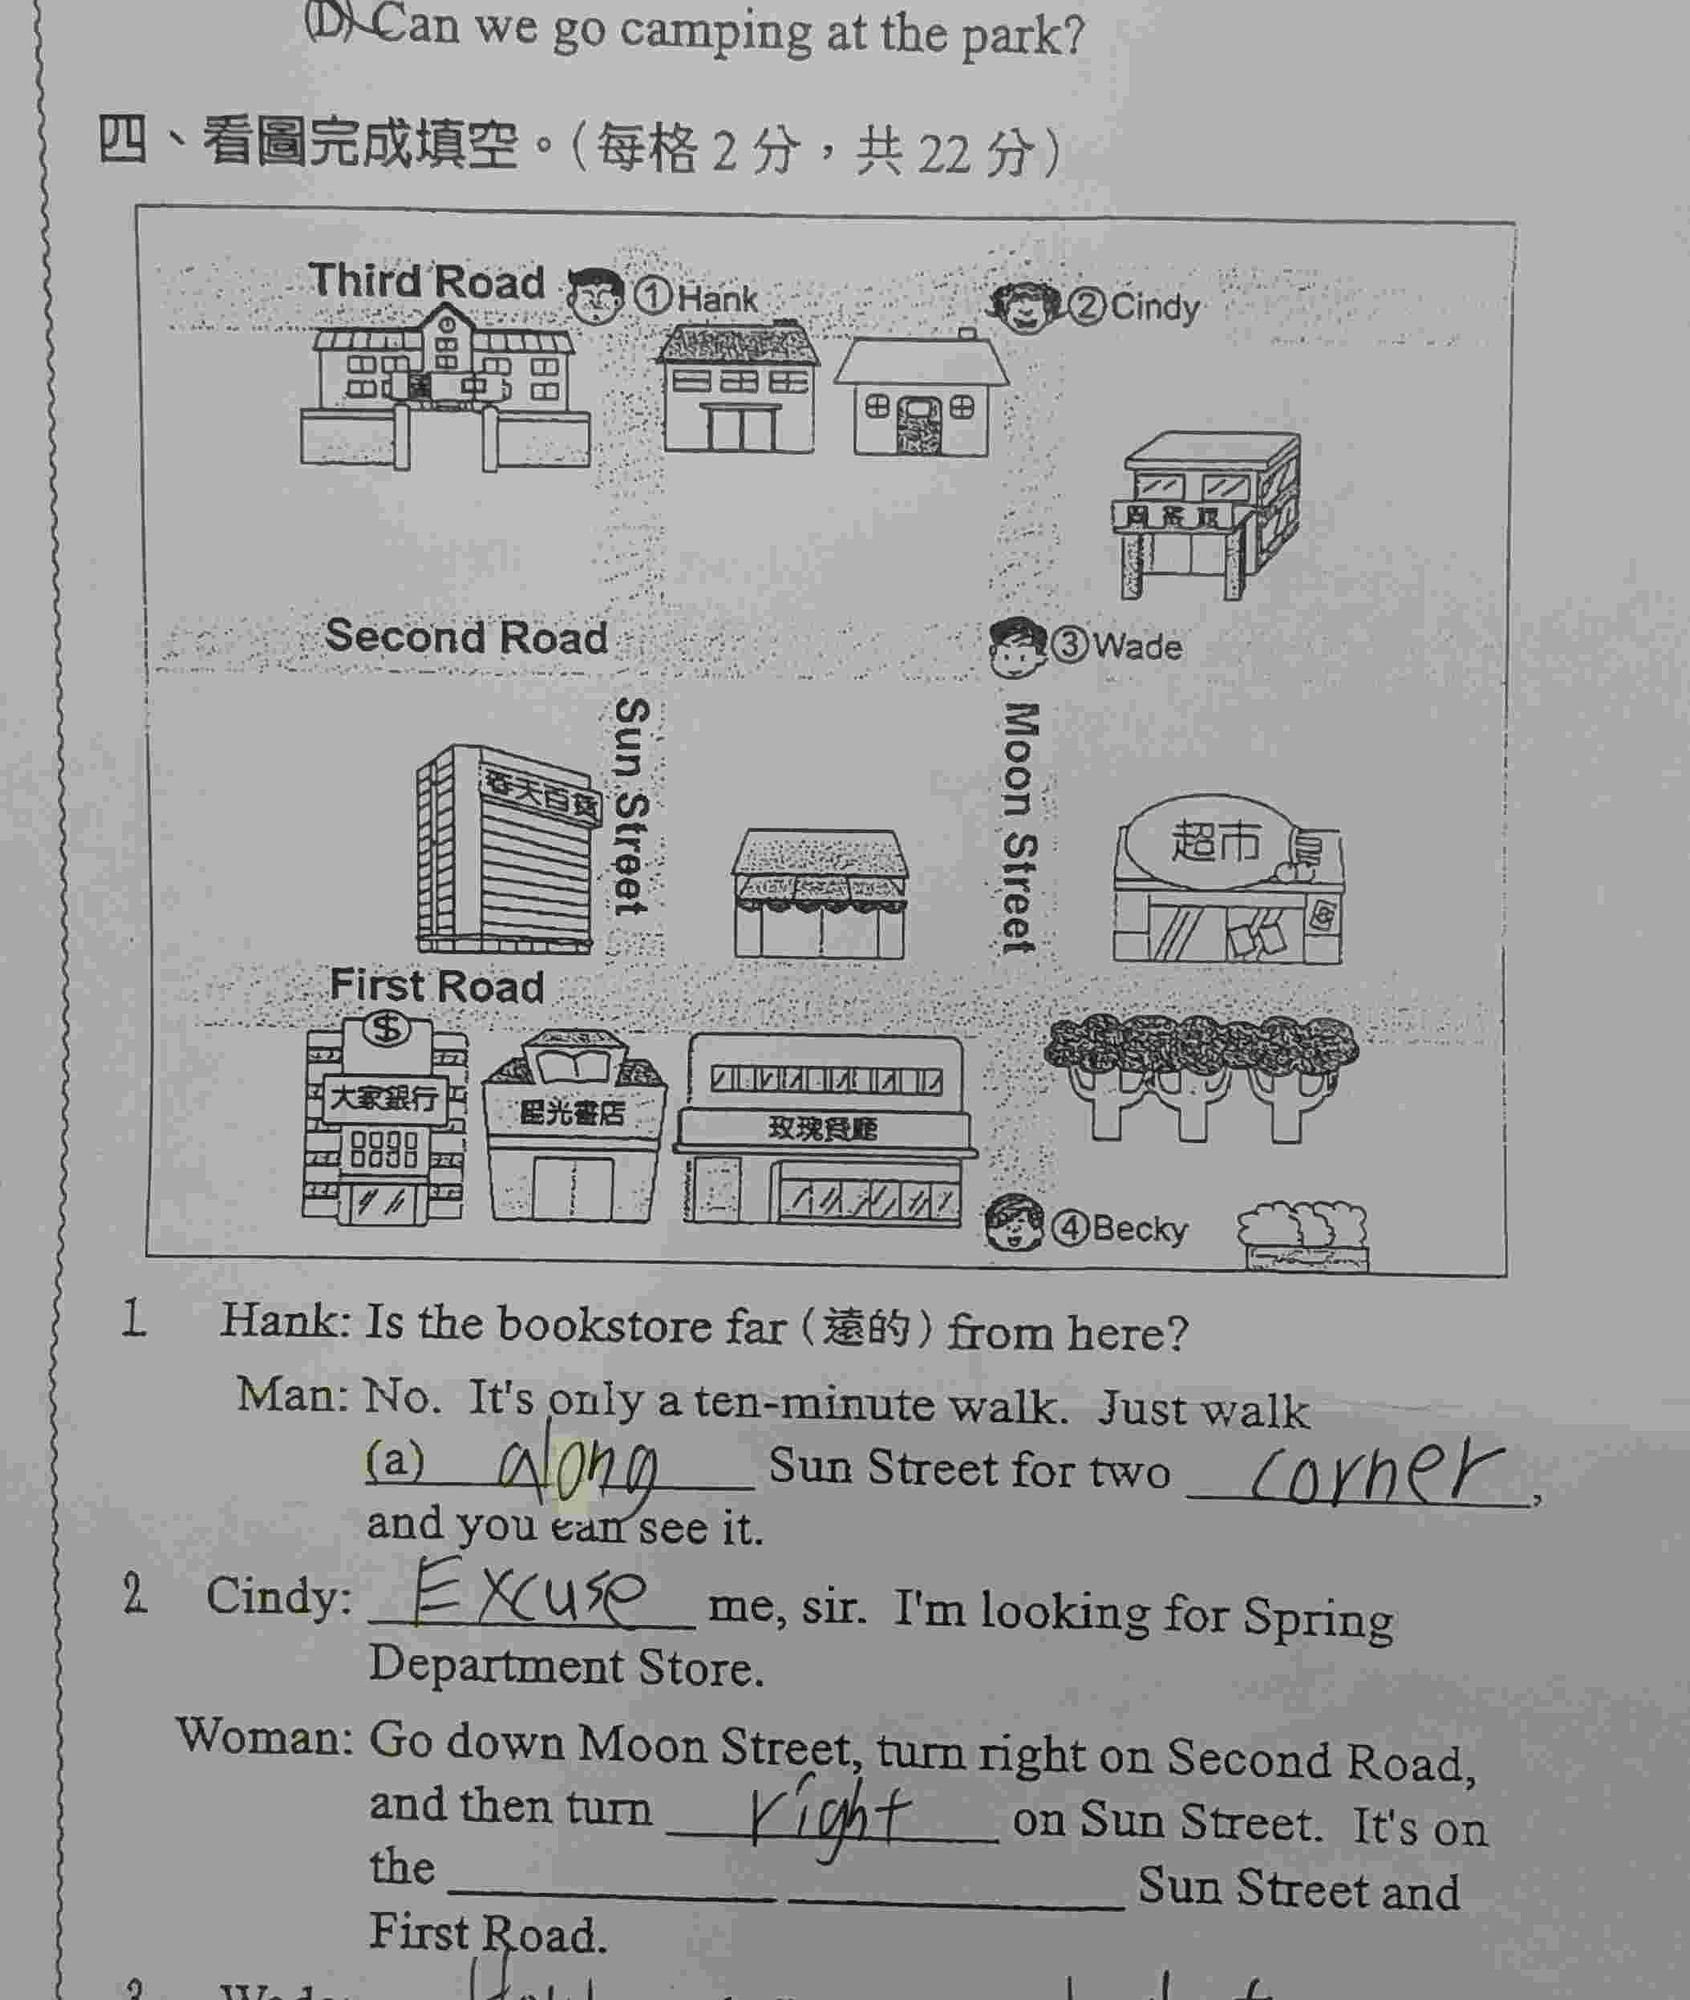 (D) Can we go camping at the park?
四、看圖完成填空。(每格2分，共22分)
Third Road
①Hank
②Cindy
Second Road
③Wade
Sun Street
Moon Street
春天百貨
超市
First Road
$
大家銀行
星光書店
玫瑰餐廳
④Becky
1 Hank: Is the bookstore far (遠的) from here?
Man: No. It's only a ten-minute walk. Just walk
(a) along Sun Street for two corner,
and you can see it.
2 Cindy: Excuse me, sir. I'm looking for Spring
Department Store.
Woman: Go down Moon Street, turn right on Second Road,
and then turn right on Sun Street. It's on
the Sun Street and
First Road.